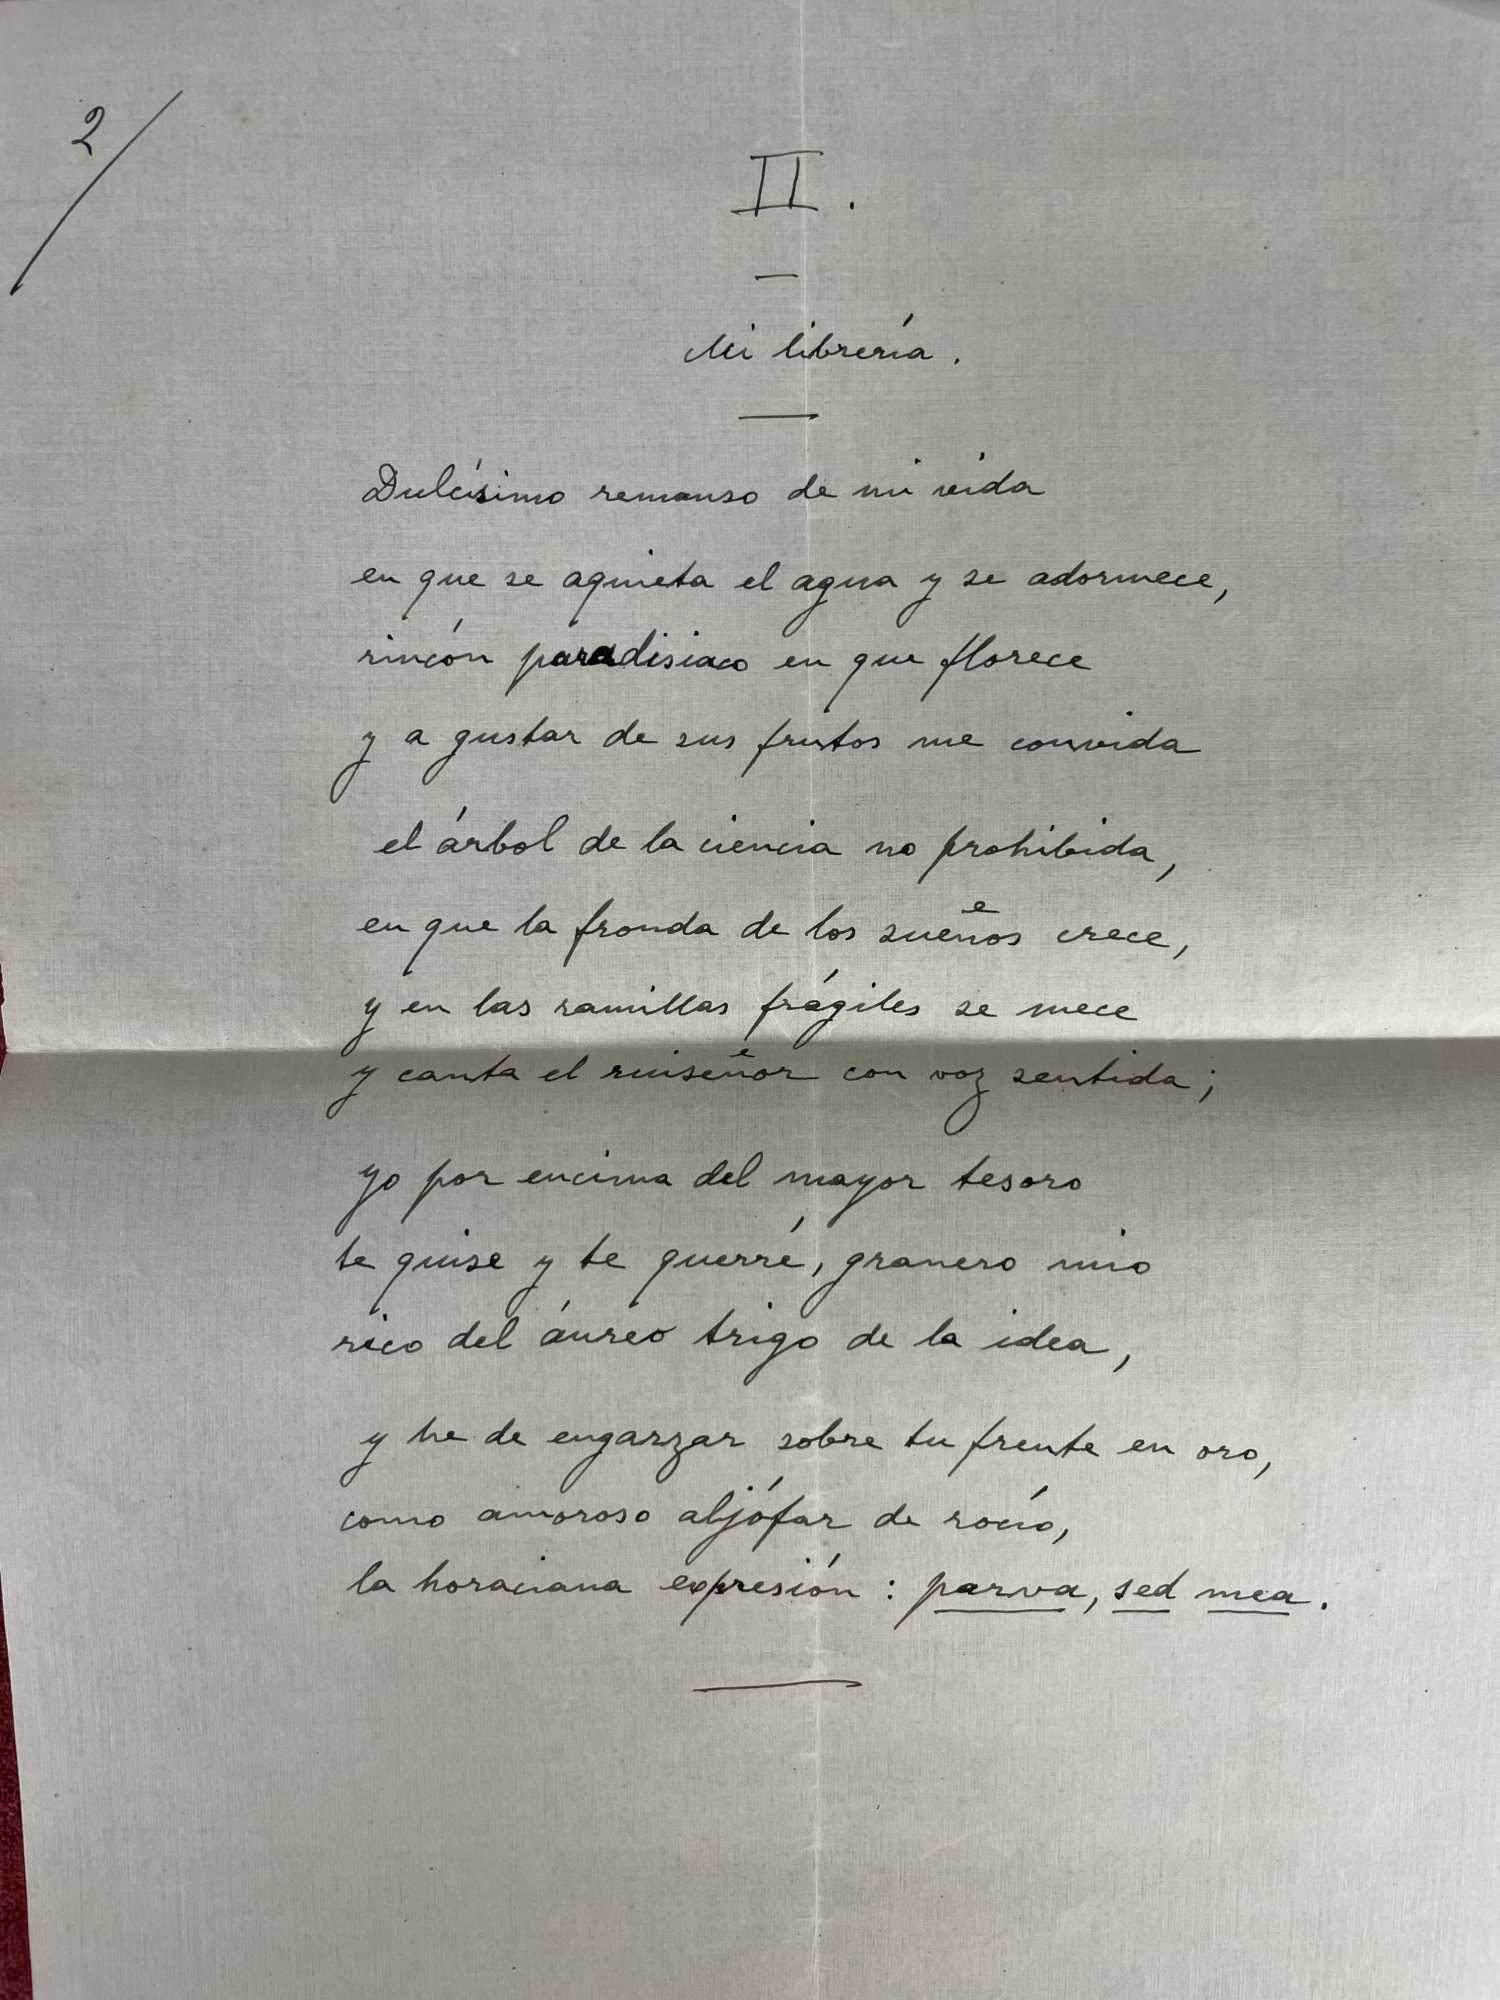 2
II.
Mi librería.
Dulcísimo remanso de mi vida
en que se aquieta el agua y se adormece,
rincón paradisiaco en que florece
y a gustar de sus frutos me convida
el árbol de la ciencia no prohibida,
en que la fronda de los sueños crece,
y en las ramillas frágiles se mece
y canta el ruiseñor con voz sentida;
yo por encima del mayor tesoro
te quise y te querré, granero mio
rico del áureo trigo de la idea,
y he de engarzar sobre tu frente en oro,
como amoroso aljófar de rocío,
la horaciana expresión: parva, sed mea.